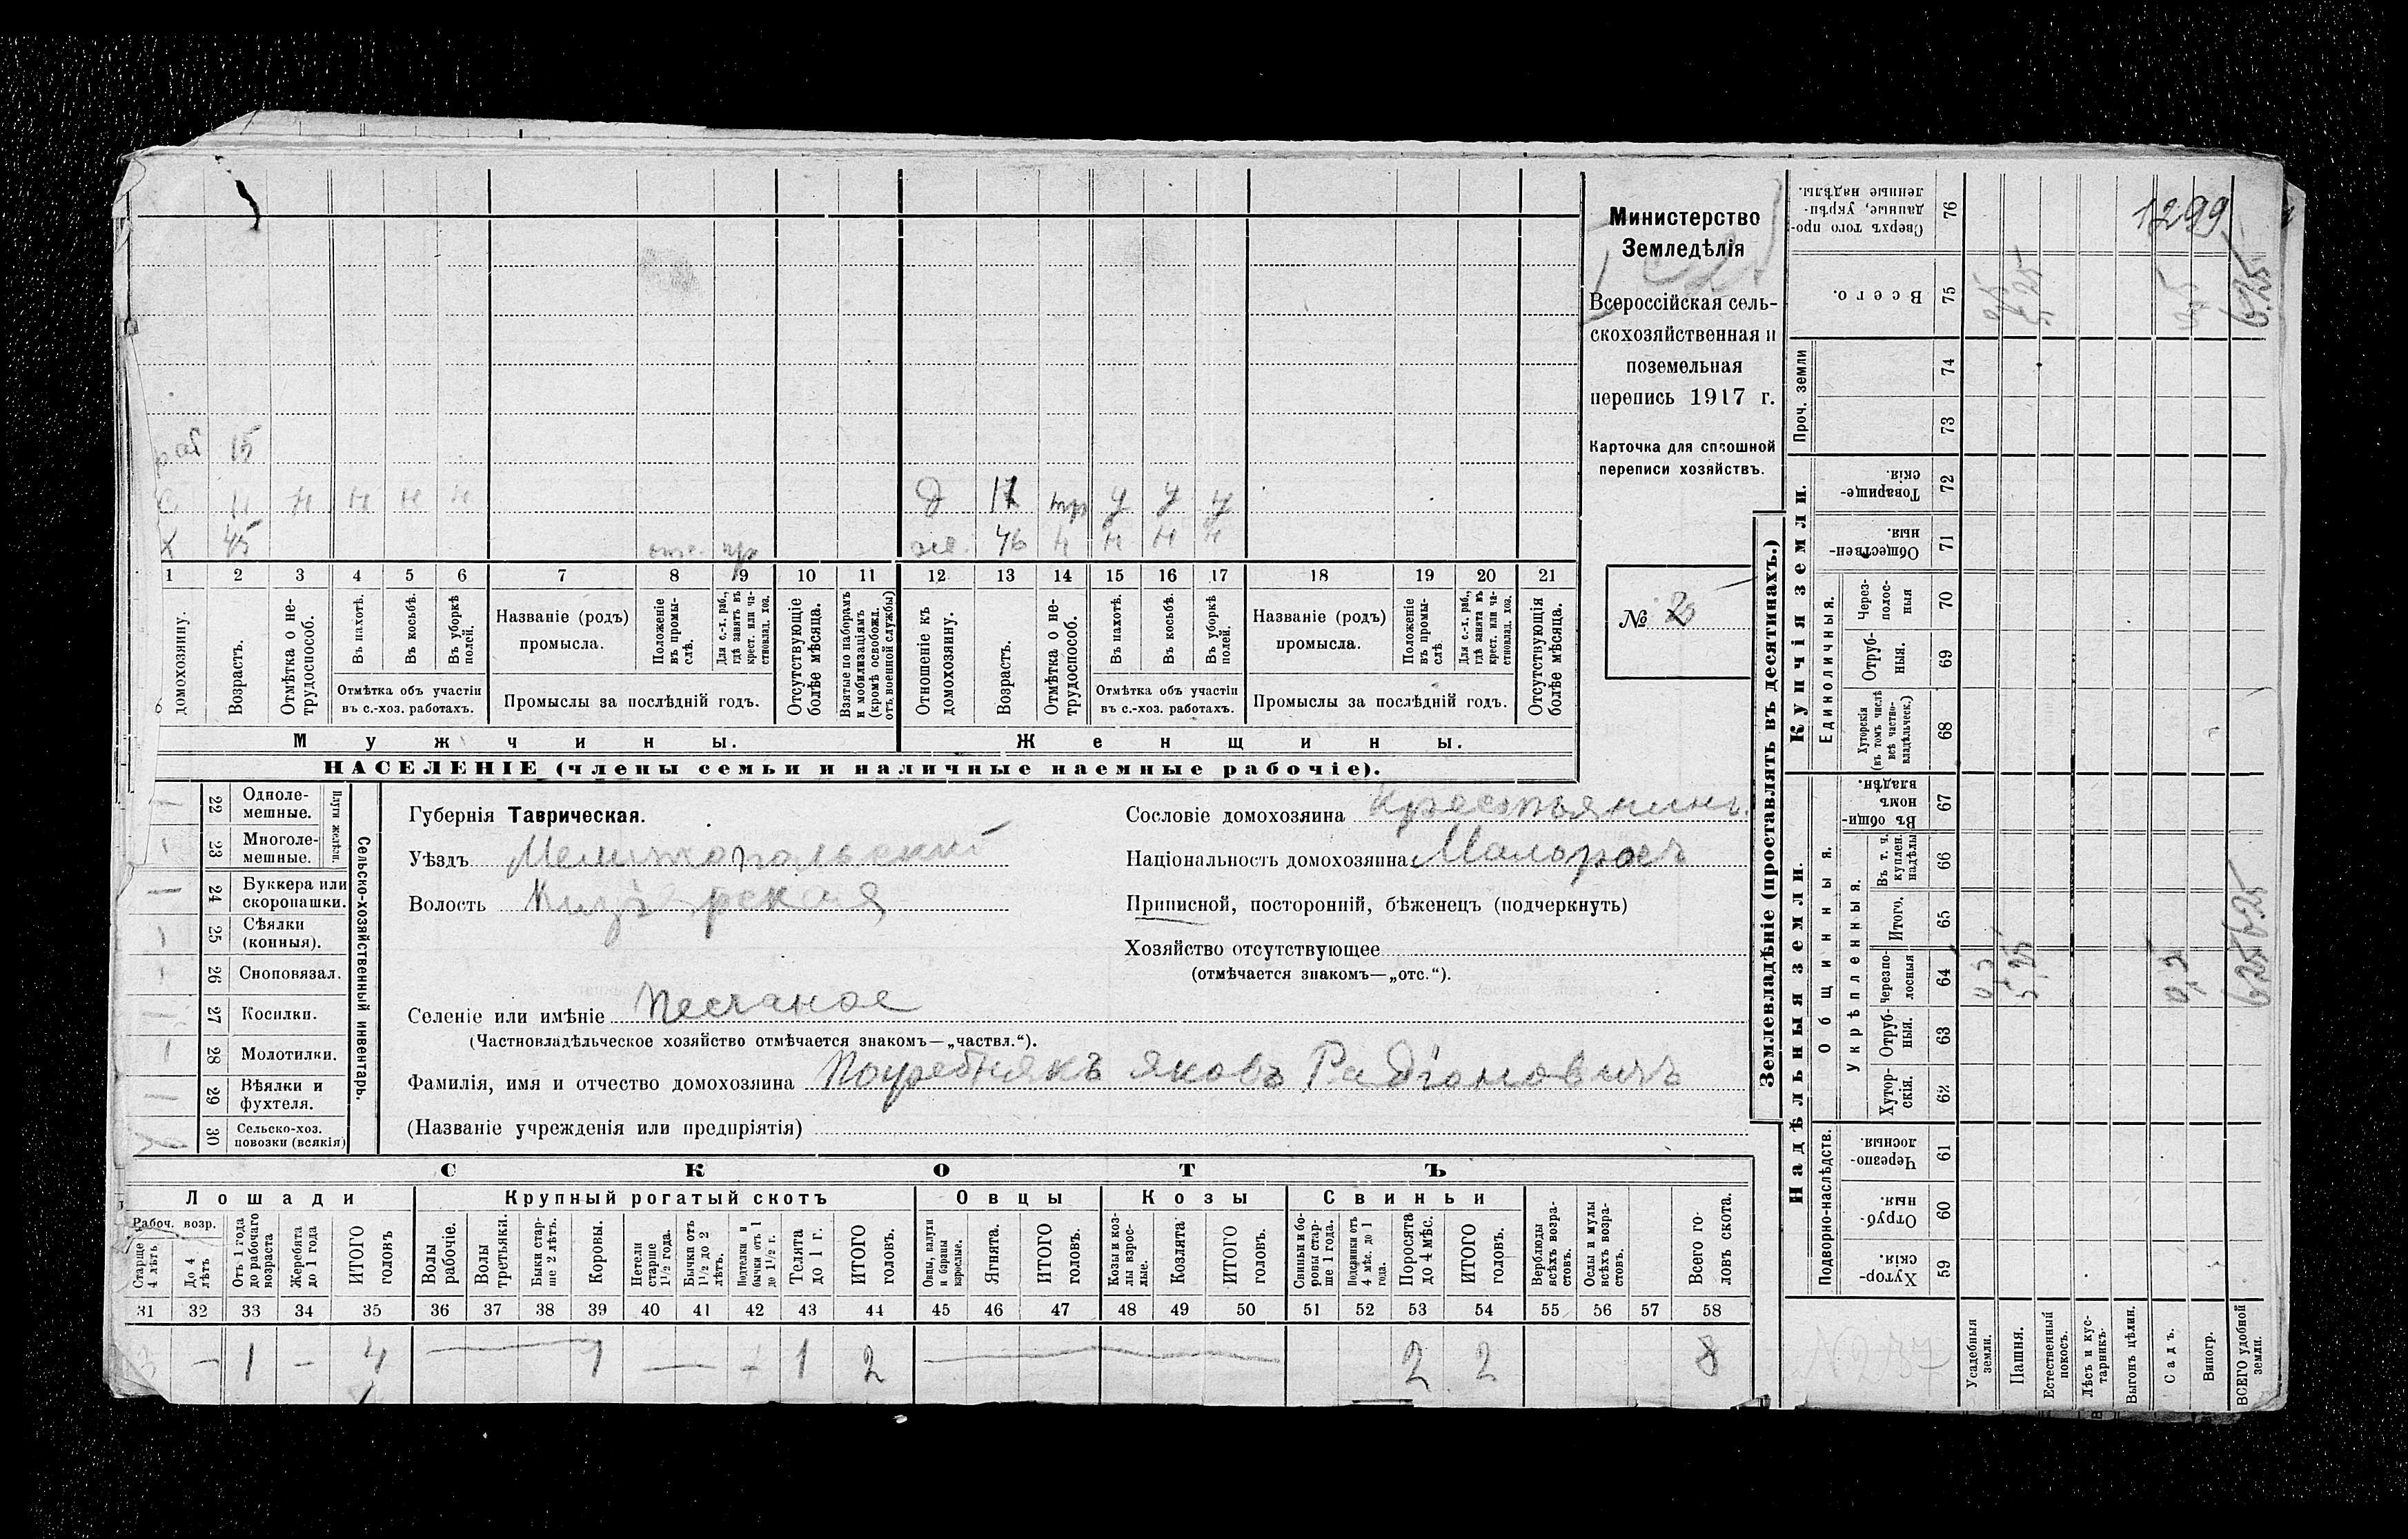 Министерство
Земледѣлія
Всероссійская сель-
скохозяйственная и
поземельная
перепись 1917 г.
Карточка для сплошной
переписи хозяйствъ.
№ 25
раб 15
С 11 н н н н
Х 45
д 17 тр у у у
же. 46 н н н н
1 2 3 4 5 6 7 8 9 10 11 12 13 14 15 16 17 18 19 20 21
домохозяину.
Возрастъ.
Отмѣтка о не-
трудоспособ.
Въ пахотѣ.
Въ косьбѣ.
Въ уборкѣ
полей.
Отмѣтка объ участіи
въ с.-хоз. работахъ.
Названіе (родъ)
промысла.
Положеніе
въ промы-
слѣ.
Для с.-х. раб.,
гдѣ занятъ въ
крест. или ча-
стновлад. хоз.
Промыслы за послѣдній годъ.
Отсутствующіе
болѣе мѣсяца.
Взятые по наборамъ
и мобилизаціямъ
(кромѣ освобожд.
отъ военной службы)
Отношеніе къ
домохозяину.
Возрастъ.
Отмѣтка о не-
трудоспособ.
Въ пахотѣ.
Въ косьбѣ.
Въ уборкѣ
полей.
Отмѣтка объ участіи
въ с.-хоз. работахъ.
Названіе (родъ)
промысла.
Положеніе
въ промы-
слѣ
Для с.-х. раб.,
гдѣ занята въ
крест. или ча-
стновлад. хоз.
Промыслы за послѣдній годъ.
Отсутствующія
болѣе мѣсяца.
Мужчины.
Женщины.
НАСЕЛЕНІЕ (члены семьи и наличные наемные рабочіе).
Сельско-хозяйственный инвентарь.
Плуги желѣзн.
22 Одноле-
мешные.
23 Многоле-
мешные.
24 Буккера или
скоропашки.
25 Сѣялки
(конныя).
26 Сноповязал.
27 Косилки.
28 Молотилки.
29 Вѣялки и
фухтеля.
30 Сельско-хоз.
повозки (всякія)
Губернія Таврическая.
Уѣздъ Мелитопольский
Волость Кизіярская
Сословіе домохозяина Крестьянинъ.
Національность домохозяина Малоросъ
Приписной, посторонній, бѣженецъ (подчеркнуть)
Хозяйство отсутствующее
(отмѣчается знакомъ—„отс.“).
Селеніе или имѣніе Песчаное
(Частновладѣльческое хозяйство отмѣчается знакомъ—„частвл.“).
Фамилія, имя и отчество домохозяина Погребнякъ Яковъ Радіоновичъ
(Названіе учрежденія или предпріятія)
СКОТЪ
Лошади
Крупный рогатый скотъ
Овцы
Козы
Свиньи
Рабоч. возр.
Старше
4 лѣтъ
До 4
лѣтъ
Отъ 1 года
до рабочаго
возраста
Жеребята
до 1 года
ИТОГО
головъ
Волы
рабочіе.
Волы
третьяки.
Быки стар-
ше 2 лѣтъ.
Коровы.
Нетели
старше
1½ года.
Бычки отъ
1½ до 2
лѣтъ.
Подтелки и
бычки отъ 1
до 1½ г.
Телята
до 1 г.
ИТОГО
головъ.
Овцы, валухи
и бараны
взрослые.
Ягнята.
ИТОГО
головъ.
Козы и коз-
лы взрос-
лые.
Козлята
ИТОГО
головъ.
Свиньи и бо-
ровы стар-
ше 1 года.
Подсвинки отъ
4 мѣс. до 1
года.
Поросята
до 4 мѣс.
ИТОГО
головъ.
Верблюды
всѣхъ возра-
стовъ.
Ослы и мулы
всѣхъ возра-
стовъ.
Всего го-
ловъ скота.
31 32 33 34 35 36 37 38 39 40 41 42 43 44 45 46 47 48 49 50 51 52 53 54 55 56 57 58
— 1 — 4 1 — 1 2 2 2 8
Землевладѣніе (проставлять въ десятинахъ.)
Надѣльныя земли.
Купчія земли.
Проч. земли
Подворно-наслѣдств.
Общинныя.
Укрѣпленныя.
Единоличныя.
Сверхъ того про-
данные, укрѣп-
ленные надѣлы.
76
1299
Всего.
75
5,25
6.25
74
73
Товарище-
скія.
72
Обществен-
ныя.
71
Через-
полос-
ныя
70
Отруб-
ныя.
69
Хуторскія
(въ томъ числѣ
всѣ частно-
владѣльческ.)
68
Въ общи-
номъ
владѣн.
67
Въ т. ч.
куплен.
надѣлы
66
Итого.
65
6.25
Черезпо-
лосныя
64
5,25
6.25
Отруб-
ныя.
63
Хутор-
скія.
62
Черезпо-
лосныя.
61
Отруб-
ныя.
60
Хутор-
скія.
59
Усадебныя
земли.
Пашня.
Естественный
покосъ.
Лѣсъ и кус-
тарникъ.
Выгонъ цѣлин.
Садъ.
Виногр.
ВСЕГО удобной
земли.